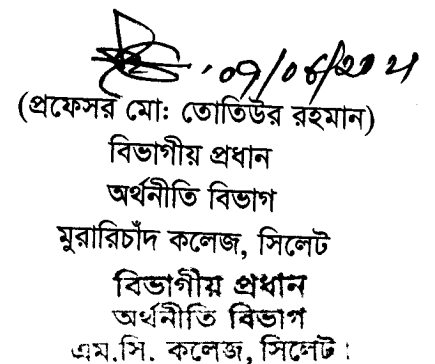 09/06/2021
(প্রফেসর মো: তোতিউর রহমান)
বিভাগীয় প্রধান
অর্থনীতি বিভাগ
মুরারিচাঁদ কলেজ, সিলেট
বিভাগীয় প্রধান
অর্থনীতি বিভাগ
এম.সি. কলেজ, সিলেট।